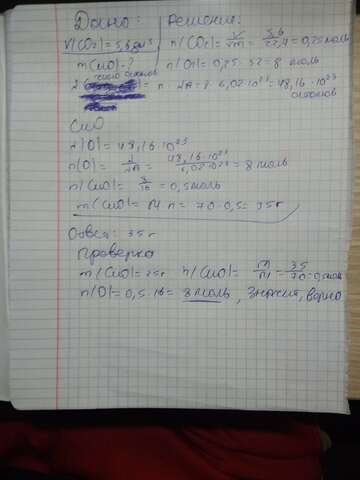 Дано:
Решение:
V(CO₂) = 5,6 дм³
n(CO₂) = V/Vm = 5,6/22,4 = 0,25 моль
m(CuO) - ?
n(O) = 0,25 · 32 = 8 моль
число атомов = n · NA = 8 · 6,02 · 10²³ = 48,16 · 10²³
атомов
CuO
N(O) = 48,16 · 10²³
n(O) = N/NA = 48,16 · 10²³/6,02 · 10²³ = 8 моль
n(CuO) = 8/16 = 0,5 моль
m(CuO) = M · n = 70 · 0,5 = 35 г
Ответ: 35 г
Проверка
m(CuO) = 35 г n(CuO) = m/M = 35/70 = 0,5 моль
n(O) = 0,5 · 16 = 8 моль, значит, верно